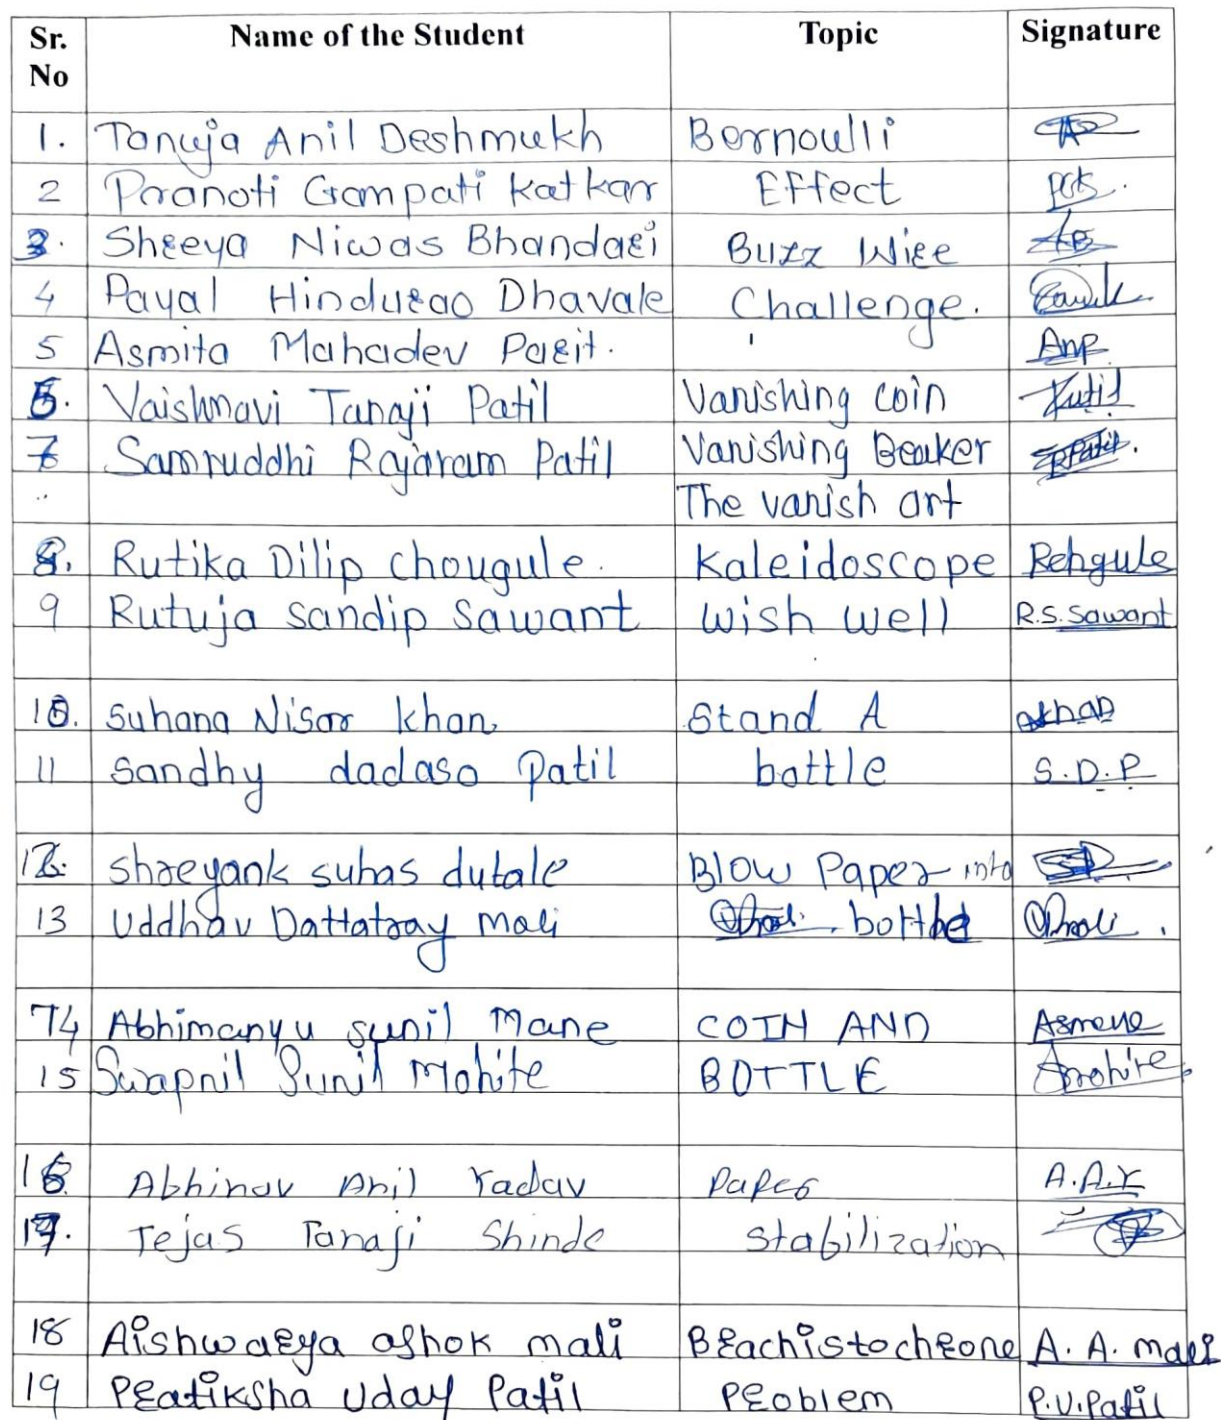 Sr. No Name of the Student Topic Signature
1. Tanuja Anil Deshmukh Bernoulli
2 Pranoti Ganpati Katkar Effect
3. Shreya Niwas Bhandari Buzz Wire
4 Payal Hindurao Dhavale Challenge.
5 Asmita Mahadev Parit. Anp
6. Vaishnavi Tanaji Patil Vanishing coin
7 Samruddhi Rajaram Patil Vanishing Beaker
The vanish art
8. Rutika Dilip chougule. Kaleidoscope
9 Rutuja Sandip Sawant wish well R.S.Sawant
10. Suhana Nisar khan. Stand A
11 Sandhy dadaso Patil bottle S.D.P
12. shreyank suhas dutale Blow Paper into
13 Uddhav Dattatray Mali bottle
14 Abhimanyu sunil Mane COIN AND
15 Swapnil Sunil Mohite BOTTLE
16 Abhinav Anil Yadav Paper A.A.Y
17. Tejas Tanaji Shinde stabilization
18 Aishwarya ashok mali Brachistochrone A. A. mali
19 Pratiksha Uday Patil Problem P.U.Patil